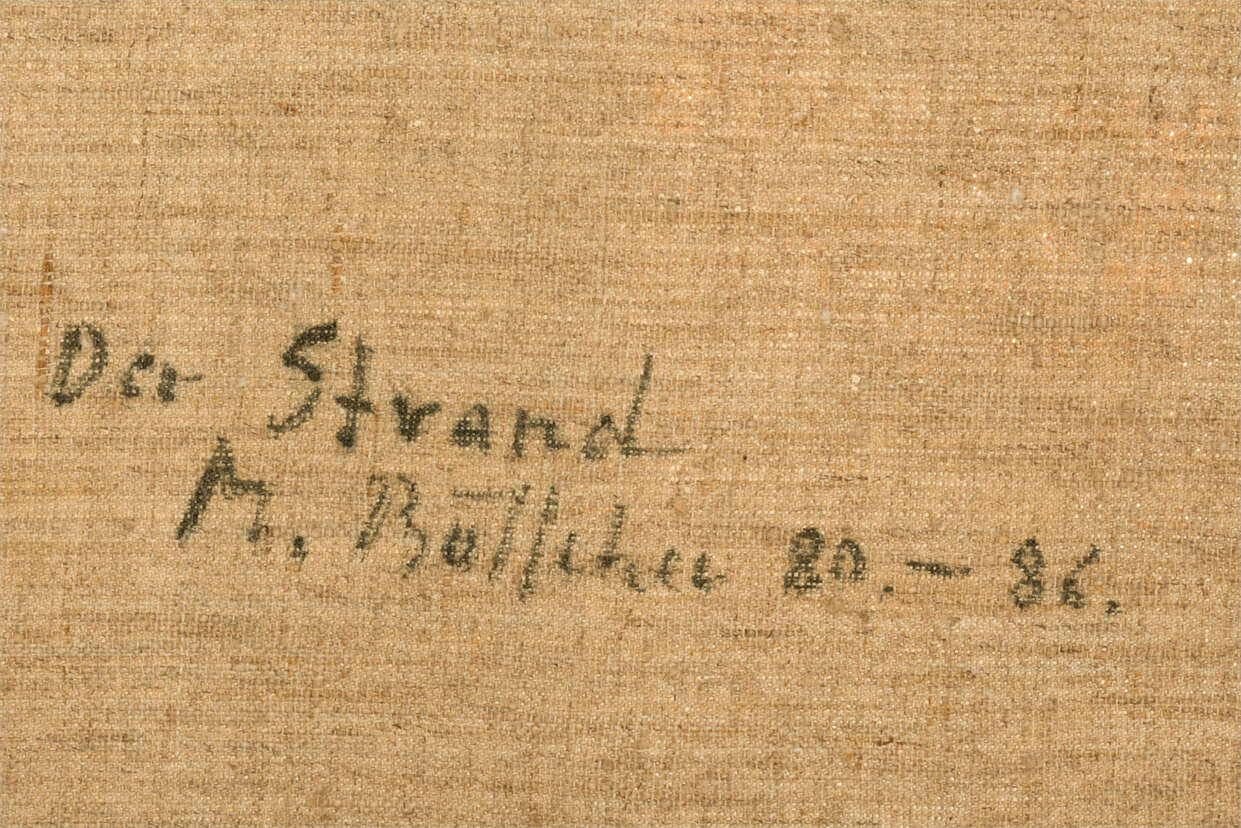 Der Strand
M. Böttcher 80. – 86.